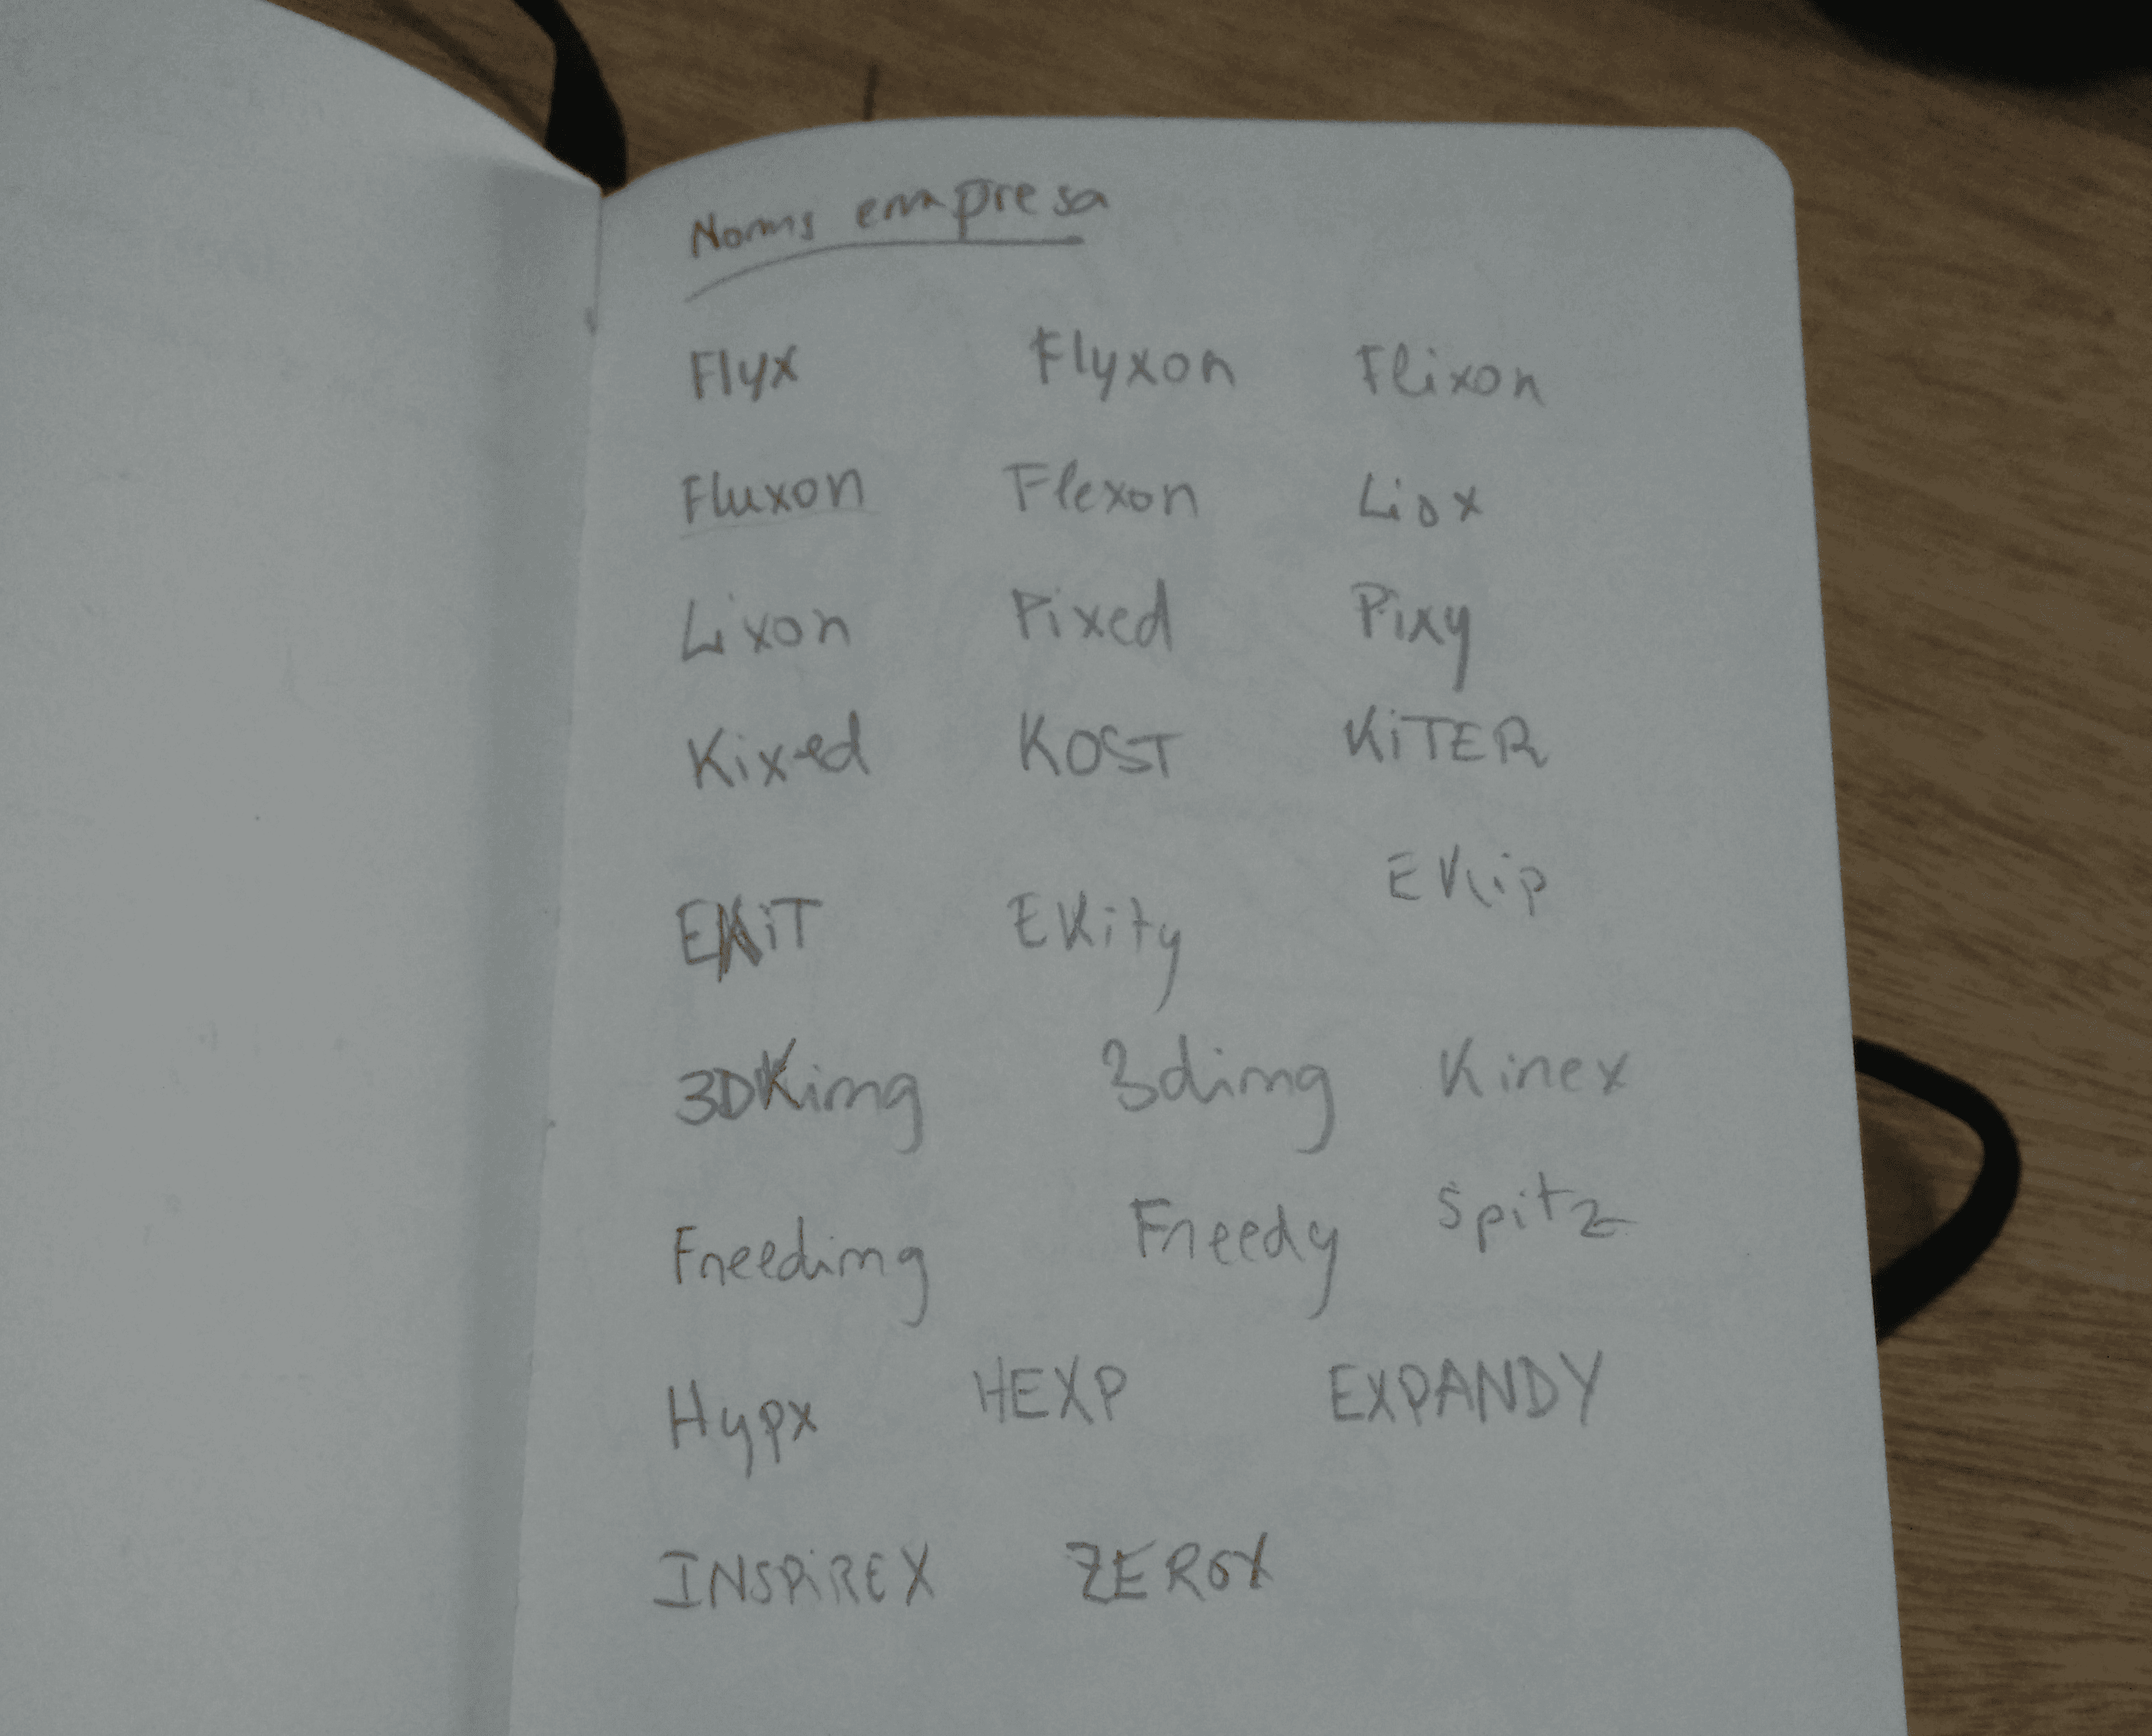 Noms empresa
Flyx Flyxon Flixon
Fluxon Flexon Liox
Lixon Pixed Pixy
Kixed KOST KiTER
EKiT EKity EKip
3DKimg 3dimg Kinex
Freedimg Freedy Spitz
Hypx HEXP EXPANDY
INSPiREX ZEROX